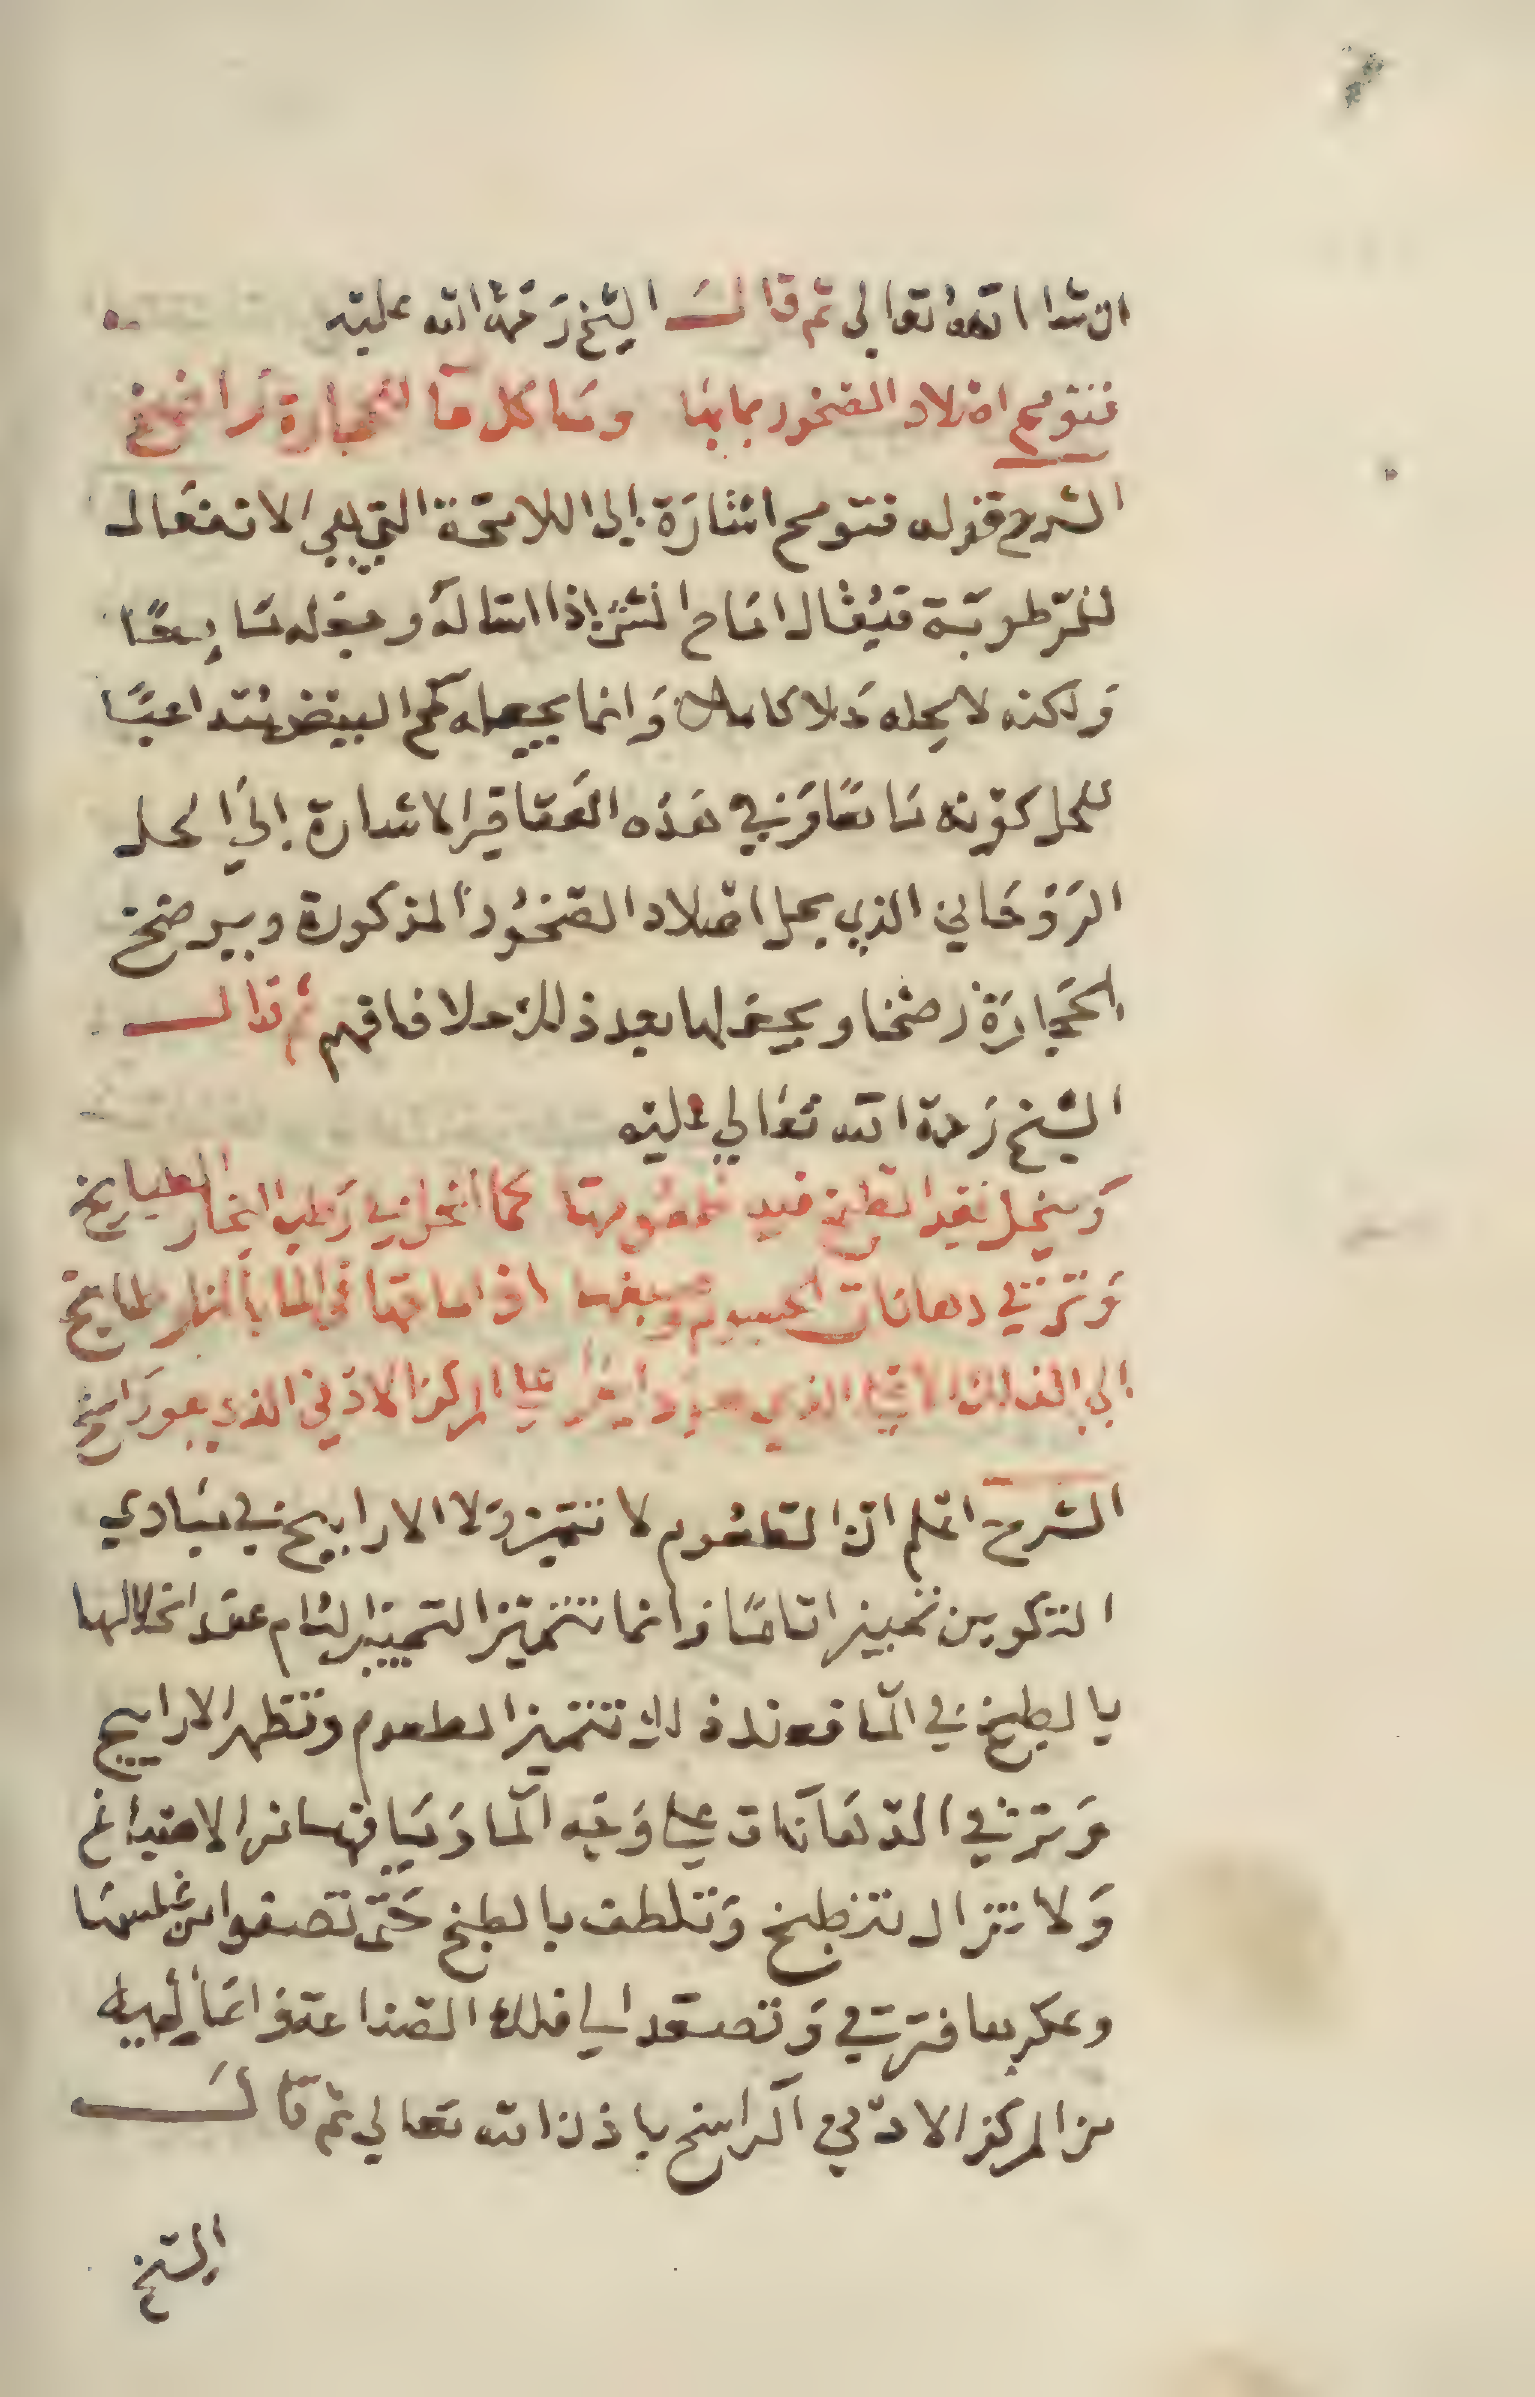 ان شا الله تعالى ثم قال الشيخ رَحمة الله عليه
فتوم اصلاد الصخور بمائها وما كل ما الحجارة راضخ
الشرح قوله فتوم اشارة إلى اللامحة التي هي الانفعال
للرطوبة فيُقال اماح الشئ اذا اساله وجعله مَا يعًا
وَلكنه لا يحله حَلا كاملا وَانما يجعله كمح البيض مستداعيًا
للحل كونه مَا يعًا وَفي هَذه العَقاقير الاشارة إلى الحل
الرَوْحَاني الذي يحل اصلاد الصخُور المذكورة ويرضخ
الحَجارَة رضخا ويجعلها بعد ذلك حلا فافهم ثم قال
الشيخ رَحمة الله تعَالي عليه
وَينحل بعد الطبخ فيه طعومها كما انحل في رَطب البخار الطبايخ
وَترتقي دهانات الجسوم وصبغها اذا ساقها في الما بالنار طابخ
الي الفلك الاعلى الذي هو دائر على المركز الادني الذي هو رَاسخ
الشرح اعلم ان الطعُوم لا تتميز وَلا الاراييح في مبَادي
التكوين تمييزا تامًا وَانما تتميّز التمييز التام عند انحلالها
بالطبخ في المَا فعند ذلك تتميز الطعوم وتظهر الاراييج
وَترتقي الدهَانَات علي وَجه المَا وَمَيا فيها من الاصباغ
وَلا تزال تنطبخ وَتلطف بالطبخ حَتّى تصفوا من غلسها
وعكرها فترتقي وَتصعد الي فلك الصنَاعة
من المركز الادني الراسخ باذن الله تعالي ثم قال
الشيخ